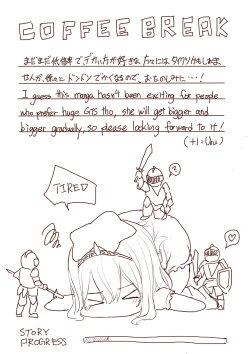 COFFEE BREAK
まだまだ低倍率で、デカい方が好きな方々にはタイクツかもしれま
せんが、徐々にドンドンでかくなるので、おたのしみに…!
I guess this manga hasn't been exciting for people
who prefer huge GTS tho, she will get bigger and
bigger gradually, so please looking forward to it!
TIRED
?
STORY
PROGRESS